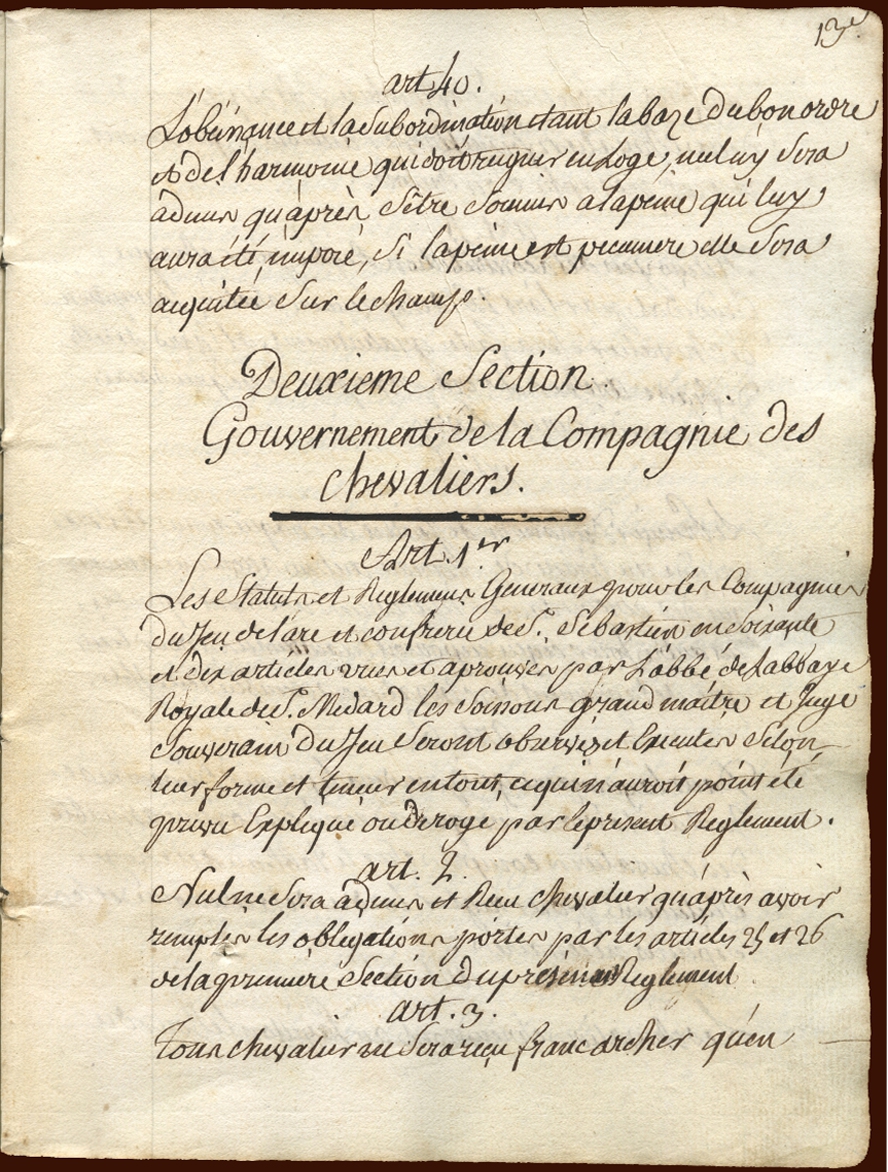 13e.
art 40.
L'obéissance et la Subordination etant la baze du bon ordre
et de l'harmonie qui doit regner en Loge, nul ny Sera
admis qu'après s'être Soumis a la peine qui luy
aura été imposé, Si la peine est pecuniere elle Sera
acquitée Sur le champ.
Deuxieme Section.
Gouvernement de la Compagnie des
Chevaliers.
Art. 1er
Les Statuts et Reglemens Generaux pour les Compagnies
du Jeu de l'arc et confrerie de St. Sébastien en Soixante
et dix articles vues et aprouvés par L'abbé de Labbaye
Royale de St. Medard les Soissons grand maitre et Juge
Souverain du Jeu Seront observés et Executés Selon
leur forme et teneur en tout, ce qui n'auroit point été
prevu Expliqué ou derogé par le present Reglement.
art. 2.
Nul ne Sera admis et Recu chevalier qu'après avoir
remplis les obligations portés par les articles 25 et 26
de la premiere Section du present Reglement
art. 3.
Tous chevalier ne Sera reçu franc archer qu'en